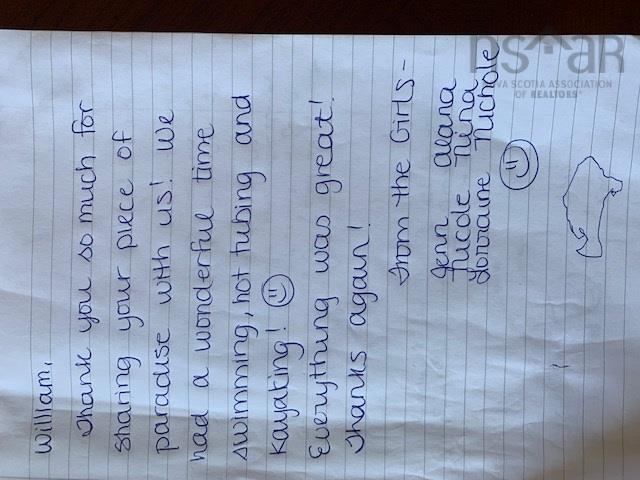 William,
Thank you so much for
sharing your piece of
paradise with us! We
had a wonderful time
swimming, hot tubing and
Kayaking! ☺
Everything was great!
Thanks again!
From the Girls -
Jenn Alana
Nicole Nina
Lorraine Nichole
☺
nsaar
NOVA SCOTIA ASSOCIATION
OF REALTORS®